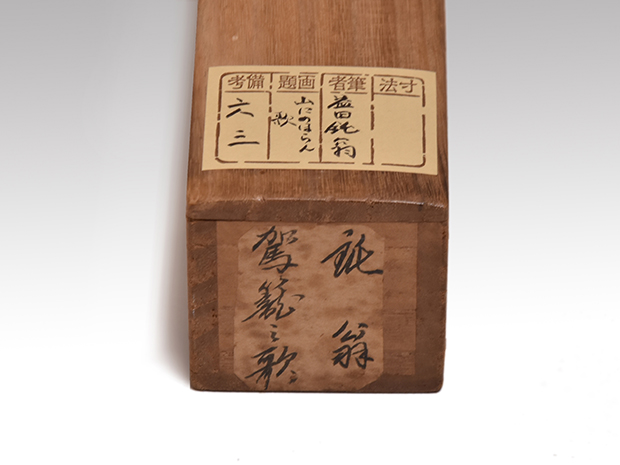 寸法
筆者
益田鈍翁
画題
山にのほらん
歌
備考
六三
鈍翁
駕籠之歌